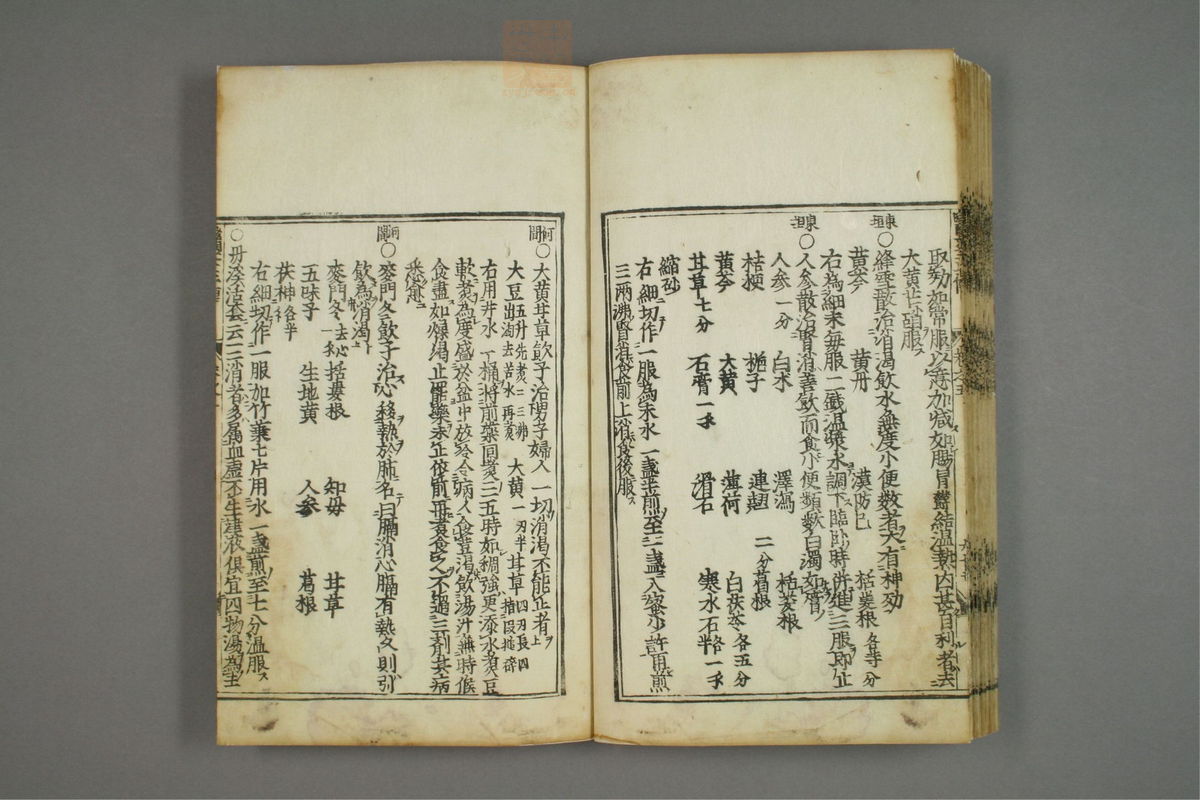 取効如常服以意加減如腸胃欝結温熱内甚自利者去
大黄芒硝服
東垣
○絳雪散治消渇飲水無度小便数者大有神効
黄芩 黄丹 漢防已 括蔞根各等分
右為細末毎服二銭温漿水調下臨臥時併進三服即止
東垣
○人参散治腎消善飲而食小便頻数白濁如膏
人参一分 白朮 澤瀉 栝蔞根
桔梗 梔子 連翹二分 葛根
黄芩 大黄 薄荷 白茯苓各五分
甘草七分 石膏一 滑石 寒水石各一
縮砂
右細切作一服為末水一盞半煎至一盞入蜜少許再煎
三両沸腎消食前上消食後服
河間
○大黄甘草飲子治男子婦人一切消渇不能止者
大豆五升先煮二三沸出淘去苦水再煮 大黄一両半 甘草四両長四指段搥砕
右用井水一桶将前薬同煮三五時如稠強更添水煮豆
軟煮為度盛於盆中放冷令病人食荳渇飲湯汁無時候
食盡如燥渇止罷薬未止依前再煮食又不過三剤其病
悉愈
河間
○麥門冬飲子治心移熱於肺名曰膈消心膈有熱久則引
飲為消渇
麥門冬去心 括蔞根 知毋 甘草
五味子 生地黄 人参 葛根
茯神各半
右細切作一服加竹葉七片用水一盞煎至七分温服
○丹溪活套云三消者多属血虚不生津液倶宜四物湯為主